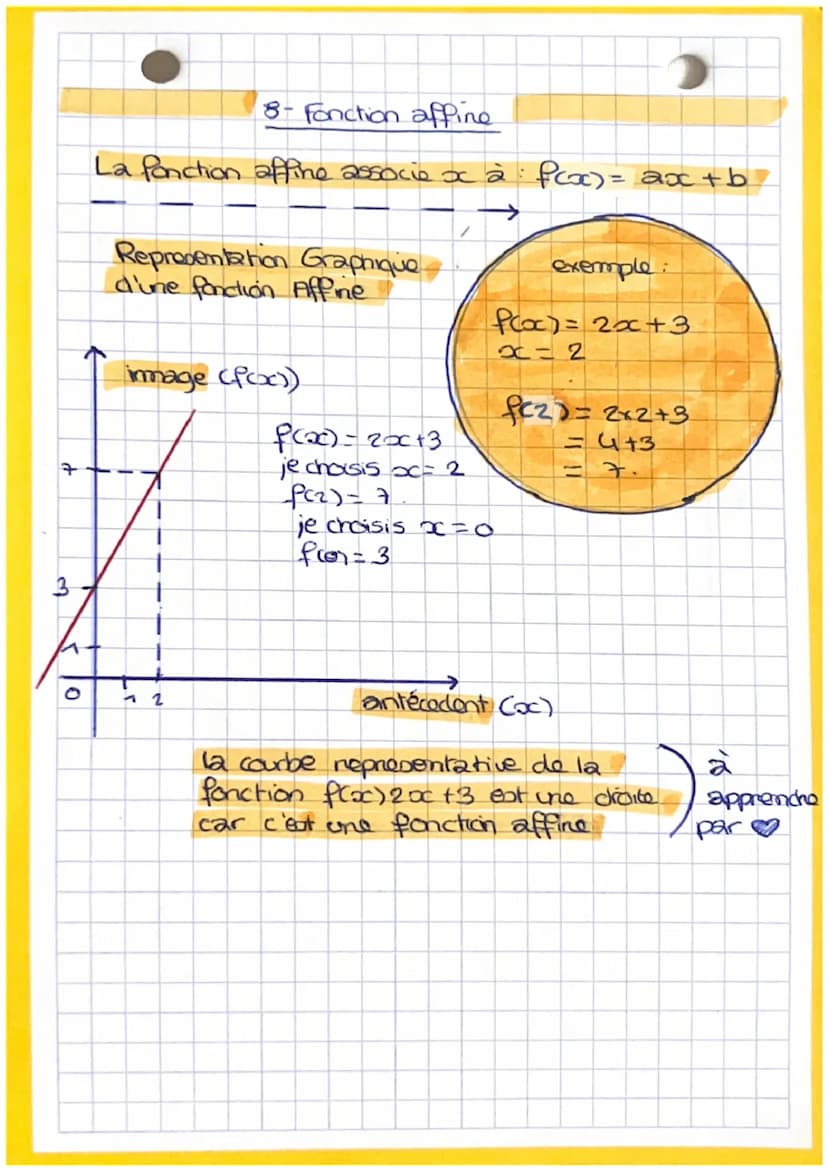 8- Fonction affine
La fonction affine associe x à : f(x) = ax + b
Representation Graphique
d'une fonction Affine
exemple :
f(x) = 2x + 3
x = 2
f(2) = 2x2+3
= 4+3
= 7.
image (f(x))
f(x) = 2x+3
je choisis x = 2
f(2) = 7.
je choisis x = 0
f(0) = 3
7
3
1
0 1 2
antécedent (x)
la courbe representative de la
fonction f(x) 2x +3 est une droite
car c'est une fonction affine
à
apprendre
par ♥